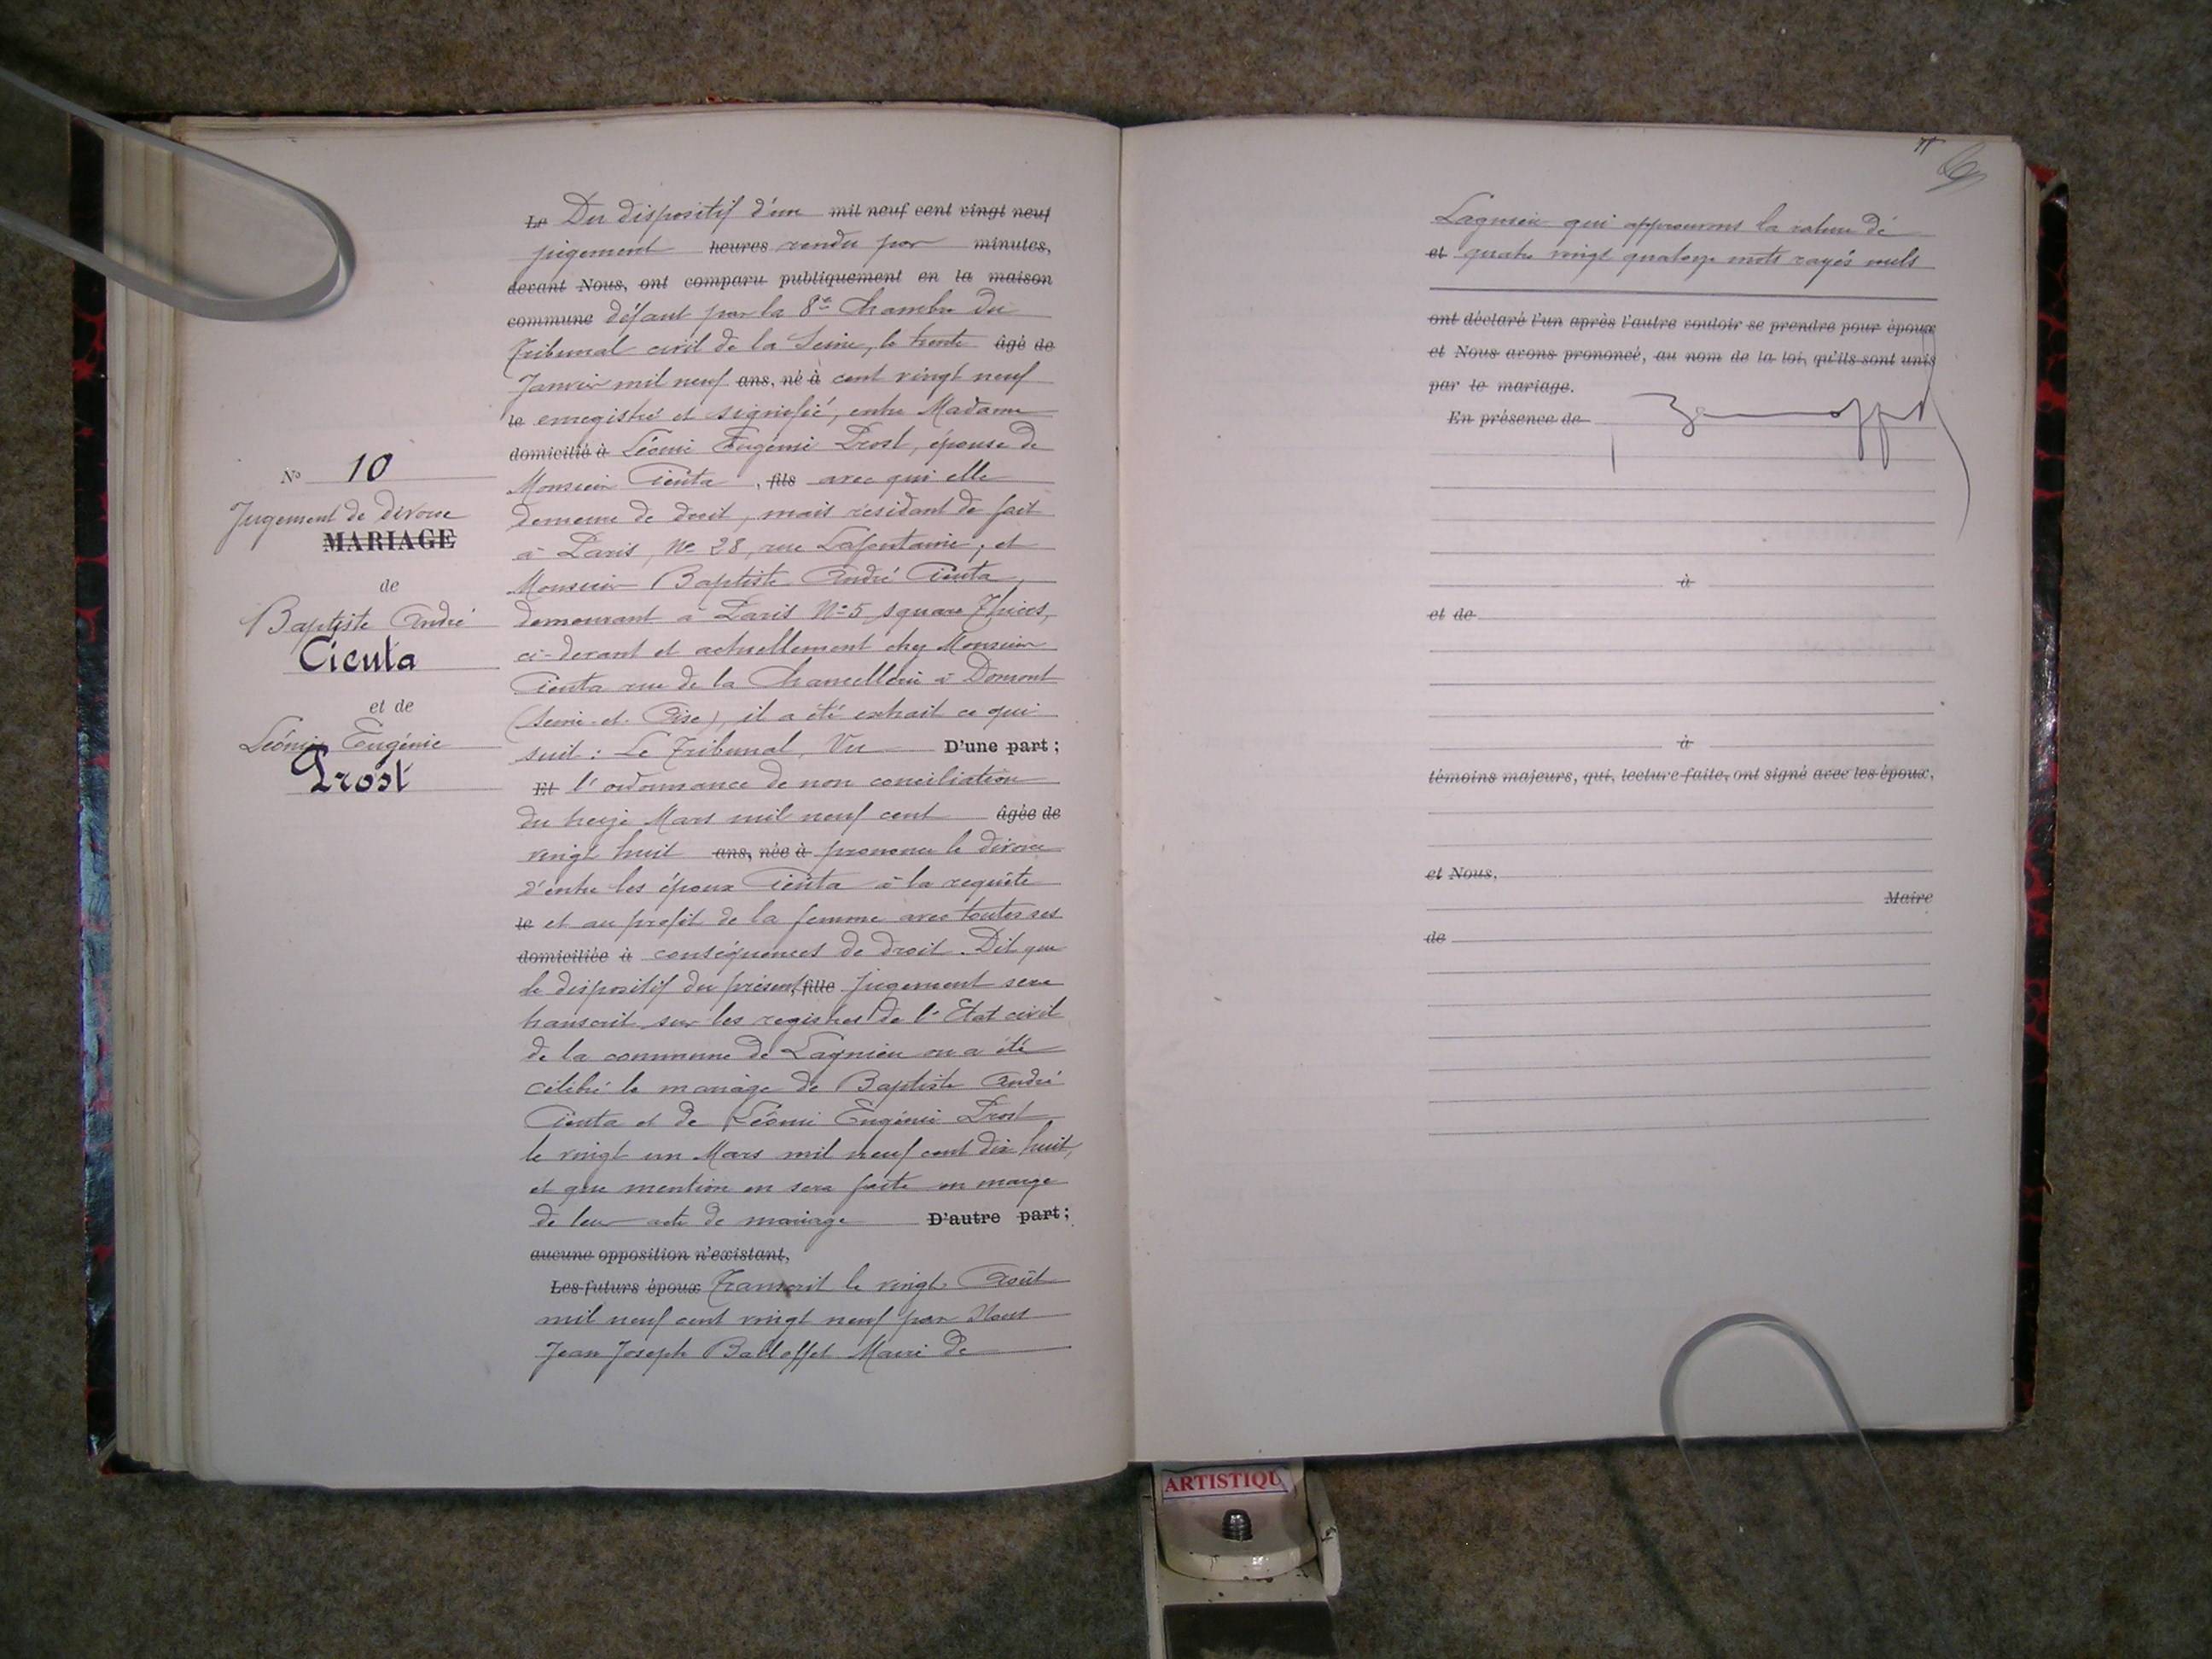 N° 10
Jugement de divorce
MARIAGE
de
Baptiste André
Cieuta
et de
Léonie Eugénie
Prost
Le Du dispositif d'un mil neuf cent vingt neuf
jugement heures rendu par minutes,
devant Nous, ont comparu publiquement en la maison
commune défaut par la 8e Chambre du
Tribunal civil de la Seine, le trente âgé de
Janvier mil neuf ans, né à cent vingt neuf
le enregistré et signifié, entre Madame
domicilié à Léonie Eugénie Prost, épouse de
Monsieur Cieuta, fils avec qui elle
demeure de droit, mais résidant de fait
à Paris, No 28, rue Lafontaine; et
Monsieur Baptiste André Cieuta,
demeurant à Paris No 5 square Thiers,
ci-devant et actuellement chez Monsieur
Cieuta rue de la Chancellerie à Domont
(Seine-et-Oise), il a été extrait ce qui
suit : Le Tribunal, Vu D'une part;
Et l'ordonnance de non conciliation
du treize Mars mil neuf cent âgée de
vingt huit ans, née à prononce le divorce
d'entre les époux Cieuta à la requête
le et au profit de la femme avec toutes ses
domiciliée à conséquences de droit. Dit que
le dispositif du présent, fille jugement sera
transcrit sur les registres de l'Etat civil
de la commune de Lagnieu ou a été
célébré le mariage de Baptiste André
Cieuta et de Léonie Eugénie Prost
le vingt un Mars mil neuf cent dix huit,
et que mention en sera faite en marge
de leur acte de mariage D'autre part;
aucune opposition n'existant,
Les futurs époux Transcrit le vingt Août
mil neuf cent vingt neuf par Nous
Jean Joseph Balloffet Maire de
Lagnieu qui approuvons la rature de
et quatre vingt quatorze mots rayés nuls
ont déclaré l'un après l'autre vouloir se prendre pour époux
et Nous avons prononcé, au nom de la loi, qu'ils sont unis
par le mariage.
En présence de
à
et de
à
témoins majeurs, qui, lecture faite, ont signé avec les époux,
et Nous,
Maire
de
ARTISTIQU